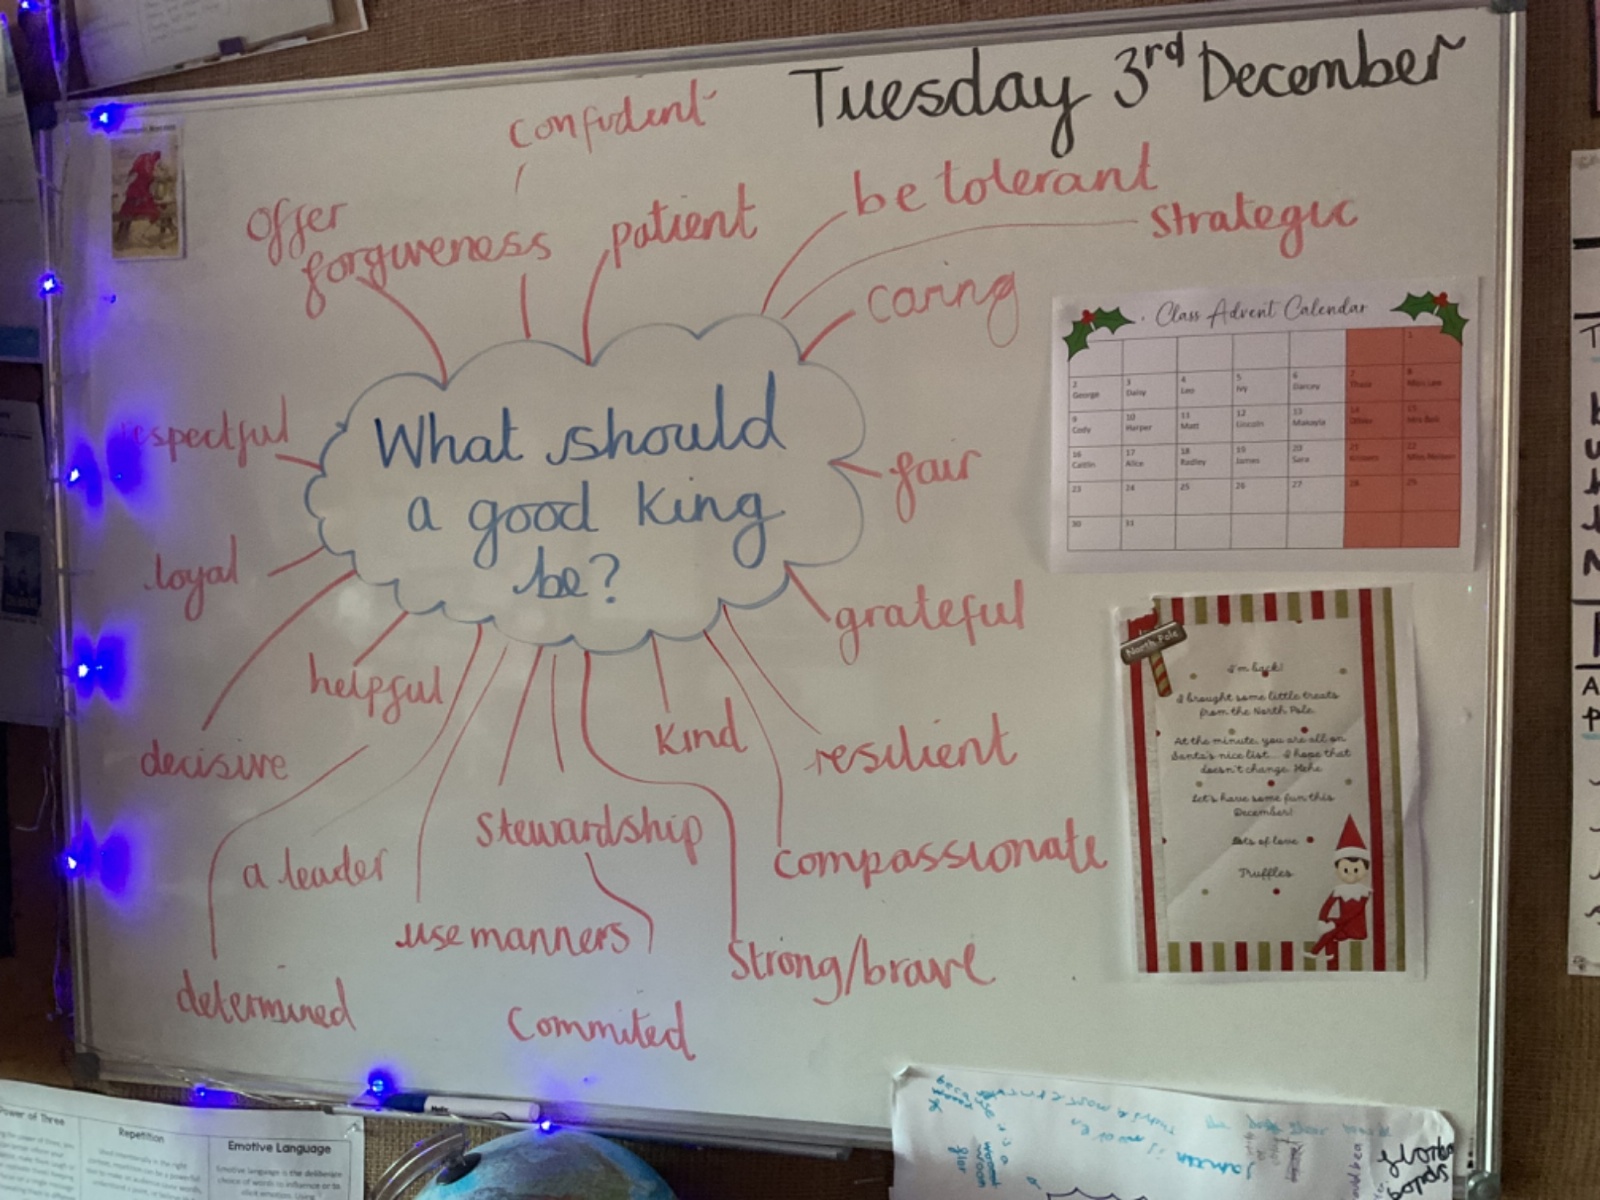 Tuesday 3rd December
confident
offer
forgiveness
patient
be tolerant
strategic
caring
respectful
What should
a good king
be?
fair
loyal
grateful
helpful
decisive
kind
resilient
a leader
Stewardship
compassionate
use manners
Strong/brave
determined
Commited
Class Advent Calendar
1
2 3 4 5 6 7 8
George Daisy Leo Ivy Darcey Miss Lee
9 10 11 12 13 14 15
Cody Harper Matt Lincoln Makayla Mrs Bell
16 17 18 19 20 21 22
Caitlin Alice Radley James Sara
23 24 25 26 27 28 29
30 31
North Pole
I'm back!
I brought some little treats
from the North Pole.
At the minute, you are all on
Santa's nice list.... I hope that
doesn't change. Hehe
Let's have some fun this
December!
Lots of love
Truffles
Power of Three
Repetition
Emotive Language
Emotive language is the deliberate
choice of words to influence or to
elicit emotion.